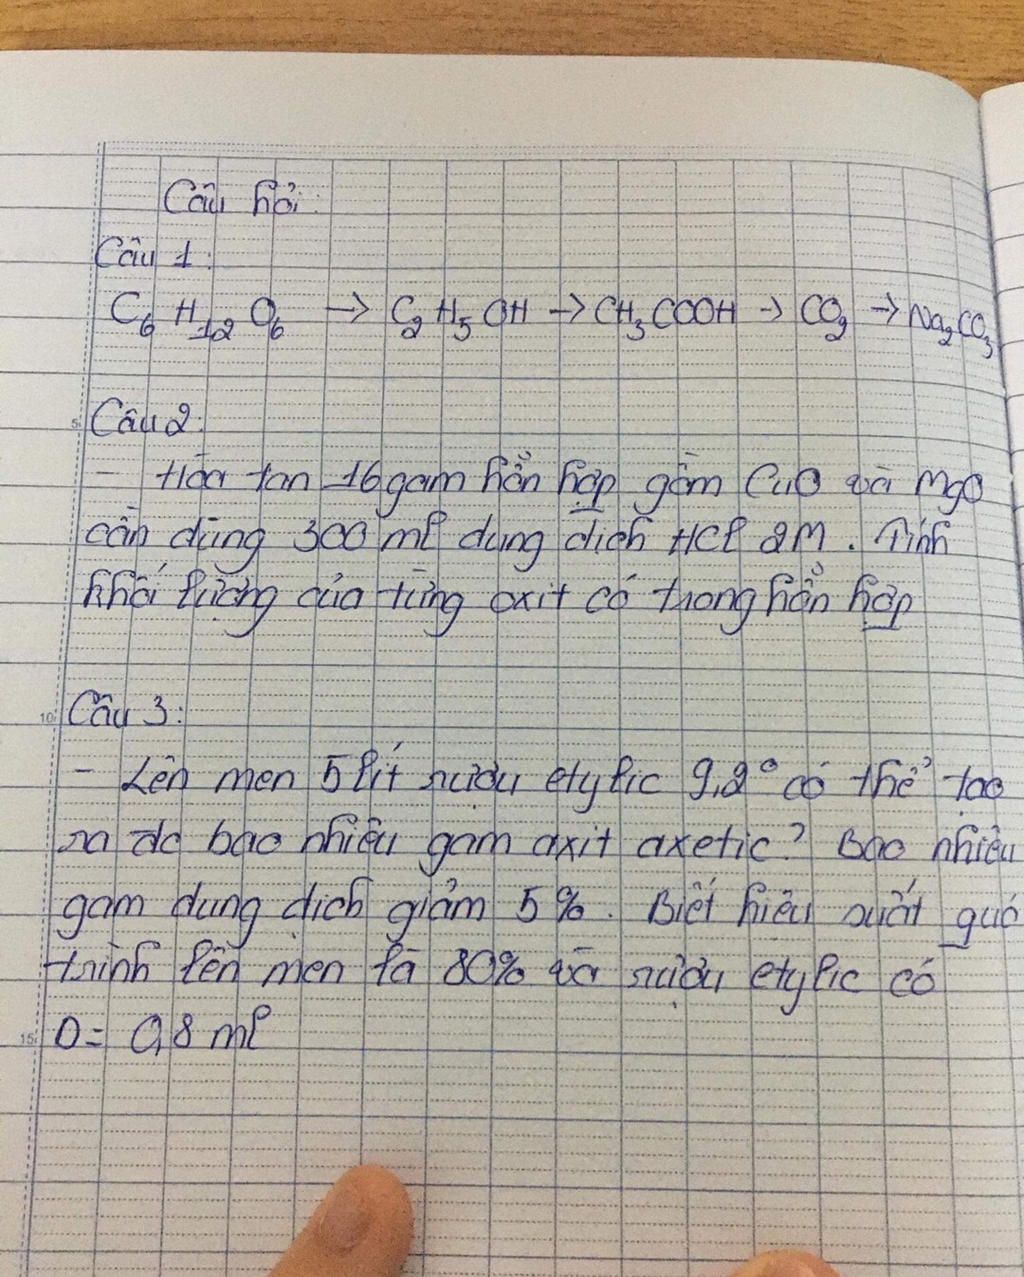 Câu hỏi:
Câu 1:
C₆H₁₂O₆ → C₂H₅OH → CH₃COOH → CO₂ → Na₂CO₃
5 Câu 2:
- Hòa tan 16 gam hỗn hợp gồm CuO và MgO
cần dùng 300 ml dung dịch HCl 2M. Tính
khối lượng của từng oxit có trong hỗn hợp
10 Câu 3:
- Lên men 5 lít rượu etylic 9,2° có thể tạo
ra đc bao nhiêu gam axit axetic? Bao nhiêu
gam dung dịch giảm 5%. Biết hiệu suất quá
trình lên men là 80% và rượu etylic có
15 D = 0,8 ml